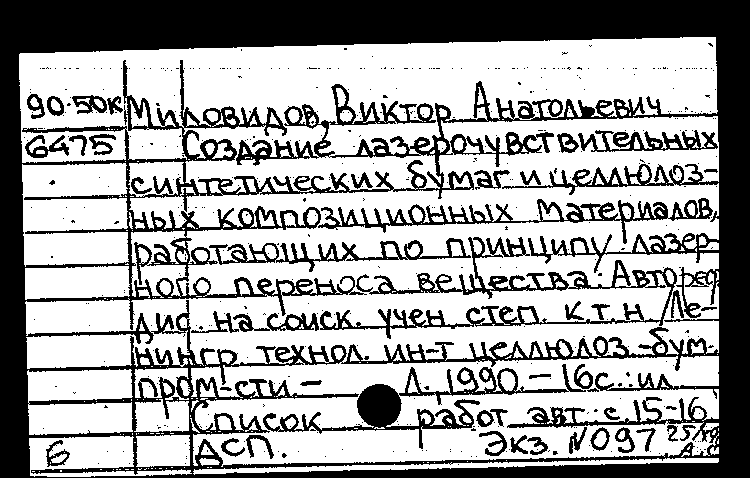 90-50к Миловидов, Виктор Анатольевич
6475 Создание лазерочувствительных
синтетических бумаг и целлюлоз-
ных композиционных материалов,
работающих по принципу лазер-
ного переноса вещества: Автореф
дис. на соиск. учен степ. к.т.н /Ле-
нингр. технол. ин-т целлюлоз.-бум.
пром-сти. - Л., 1990. - 16с.: ил
Список работ авт.: с.15-16
6 ДСП. Экз. N097